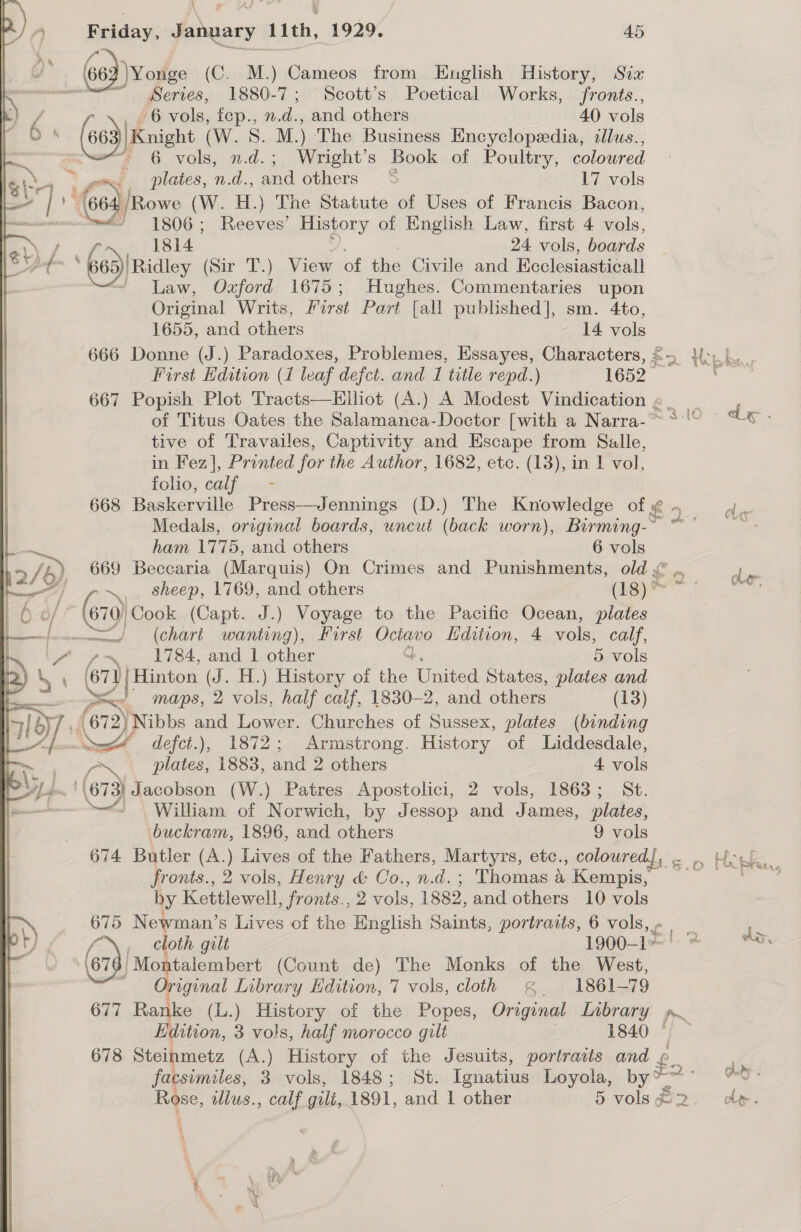 Friday, January 11th, 1929. 45
662 Yonge (C. M.) Cameos from English History, Six
Series, 1880-7; Scott's Poetical Works, fronts.,
6 vols, fcp., n.d., and others 40 vols
663 Knight (W. S. M.) The Business Encyclopædia, illus.,
6 vols, n.d.; Wright's Book of Poultry, coloured
plates, n.d., and others 17 vols
664 Rowe (W. H.) The Statute of Uses of Francis Bacon,
1806; Reeves' History of English Law, first 4 vols,
1814 24 vols, boards
665 Ridley (Sir T.) View of the Civile and Ecclesiasticall
Law, Oxford 1675; Hughes. Commentaries upon
Original Writs, First Part [all published], sm. 4to,
1655, and others 14 vols
666 Donne (J.) Paradoxes, Problemes, Essayes, Characters,
First Edition (1 leaf defct. and 1 title repd.) 1652
667 Popish Plot Tracts—Elliot (A.) A Modest Vindication
of Titus Oates the Salamanca-Doctor [with a Narra-
tive of Travailes, Captivity and Escape from Salle,
in Fez], Printed for the Author, 1682, etc. (13), in 1 vol,
folio, calf
668 Baskerville Press—Jennings (D.) The Knowledge of
Medals, original boards, uncut (back worn), Birming-
ham 1775, and others 6 vols
669 Beccaria (Marquis) On Crimes and Punishments, old
sheep, 1769, and others (18)
670 Cook (Capt. J.) Voyage to the Pacific Ocean, plates
(chart wanting), First Octavo Edition, 4 vols, calf,
1784, and 1 other 5 vols
671 Hinton (J. H.) History of the United States, plates and
maps, 2 vols, half calf, 1830-2, and others (13)
672 Nibbs and Lower. Churches of Sussex, plates (binding
defct.), 1872; Armstrong. History of Liddesdale,
plates, 1883, and 2 others 4 vols
673 Jacobson (W.) Patres Apostolici, 2 vols, 1863; St.
William of Norwich, by Jessop and James, plates,
buckram, 1896, and others 9 vols
674 Butler (A.) Lives of the Fathers, Martyrs, etc., coloured
fronts., 2 vols, Henry & Co., n.d.; Thomas à Kempis,
by Kettlewell, fronts., 2 vols, 1882, and others 10 vols
675 Newman's Lives of the English Saints, portraits, 6 vols,
cloth gilt 1900-1
676 Montalembert (Count de) The Monks of the West,
Original Library Edition, 7 vols, cloth 1861-79
677 Ranke (L.) History of the Popes, Original Library
Edition, 3 vols, half morocco gilt 1840
678 Steinmetz (A.) History of the Jesuits, portraits and
facsimiles, 3 vols, 1848; St. Ignatius Loyola, by
Rose, illus., calf gilt, 1891, and 1 other 5 vols